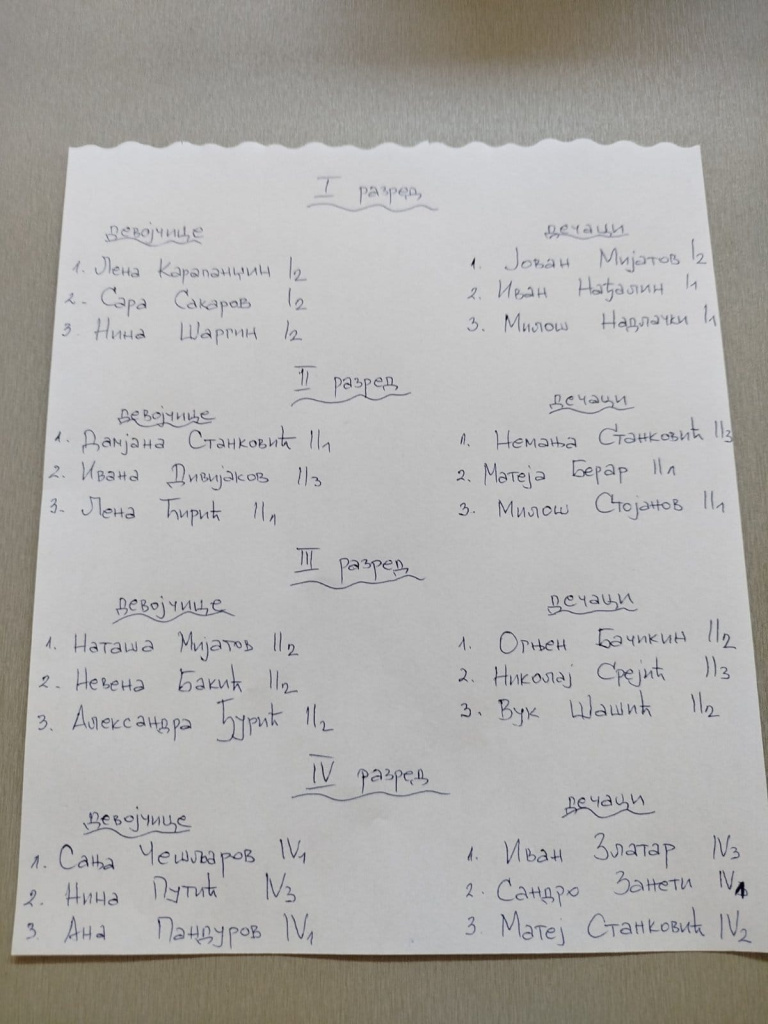 I разред
девојчице
1. Лена Карапанџин I2
2. Сара Сакаров I2
3. Нина Шаргин I2
дечаци
1. Јован Мијатов I2
2. Иван Нађалин I1
3. Милош Надлачки I1
II разред
девојчице
1. Дамјана Станковић II1
2. Ивана Дивијаков II3
3. Лена Ћирић II1
дечаци
1. Немања Станковић II3
2. Матеја Берар II1
3. Милош Стојанов II1
III разред
девојчице
1. Наташа Мијатов II2
2. Невена Бакић II2
3. Александра Ђурић II2
дечаци
1. Огњен Бачикин II2
2. Николај Срејић II3
3. Вук Шашић II2
IV разред
девојчице
1. Сања Чешљаров IV1
2. Нина Путић IV3
3. Ана Пандуров IV1
дечаци
1. Иван Златар IV3
2. Сандро Занети IV1
3. Матеј Станковић IV2